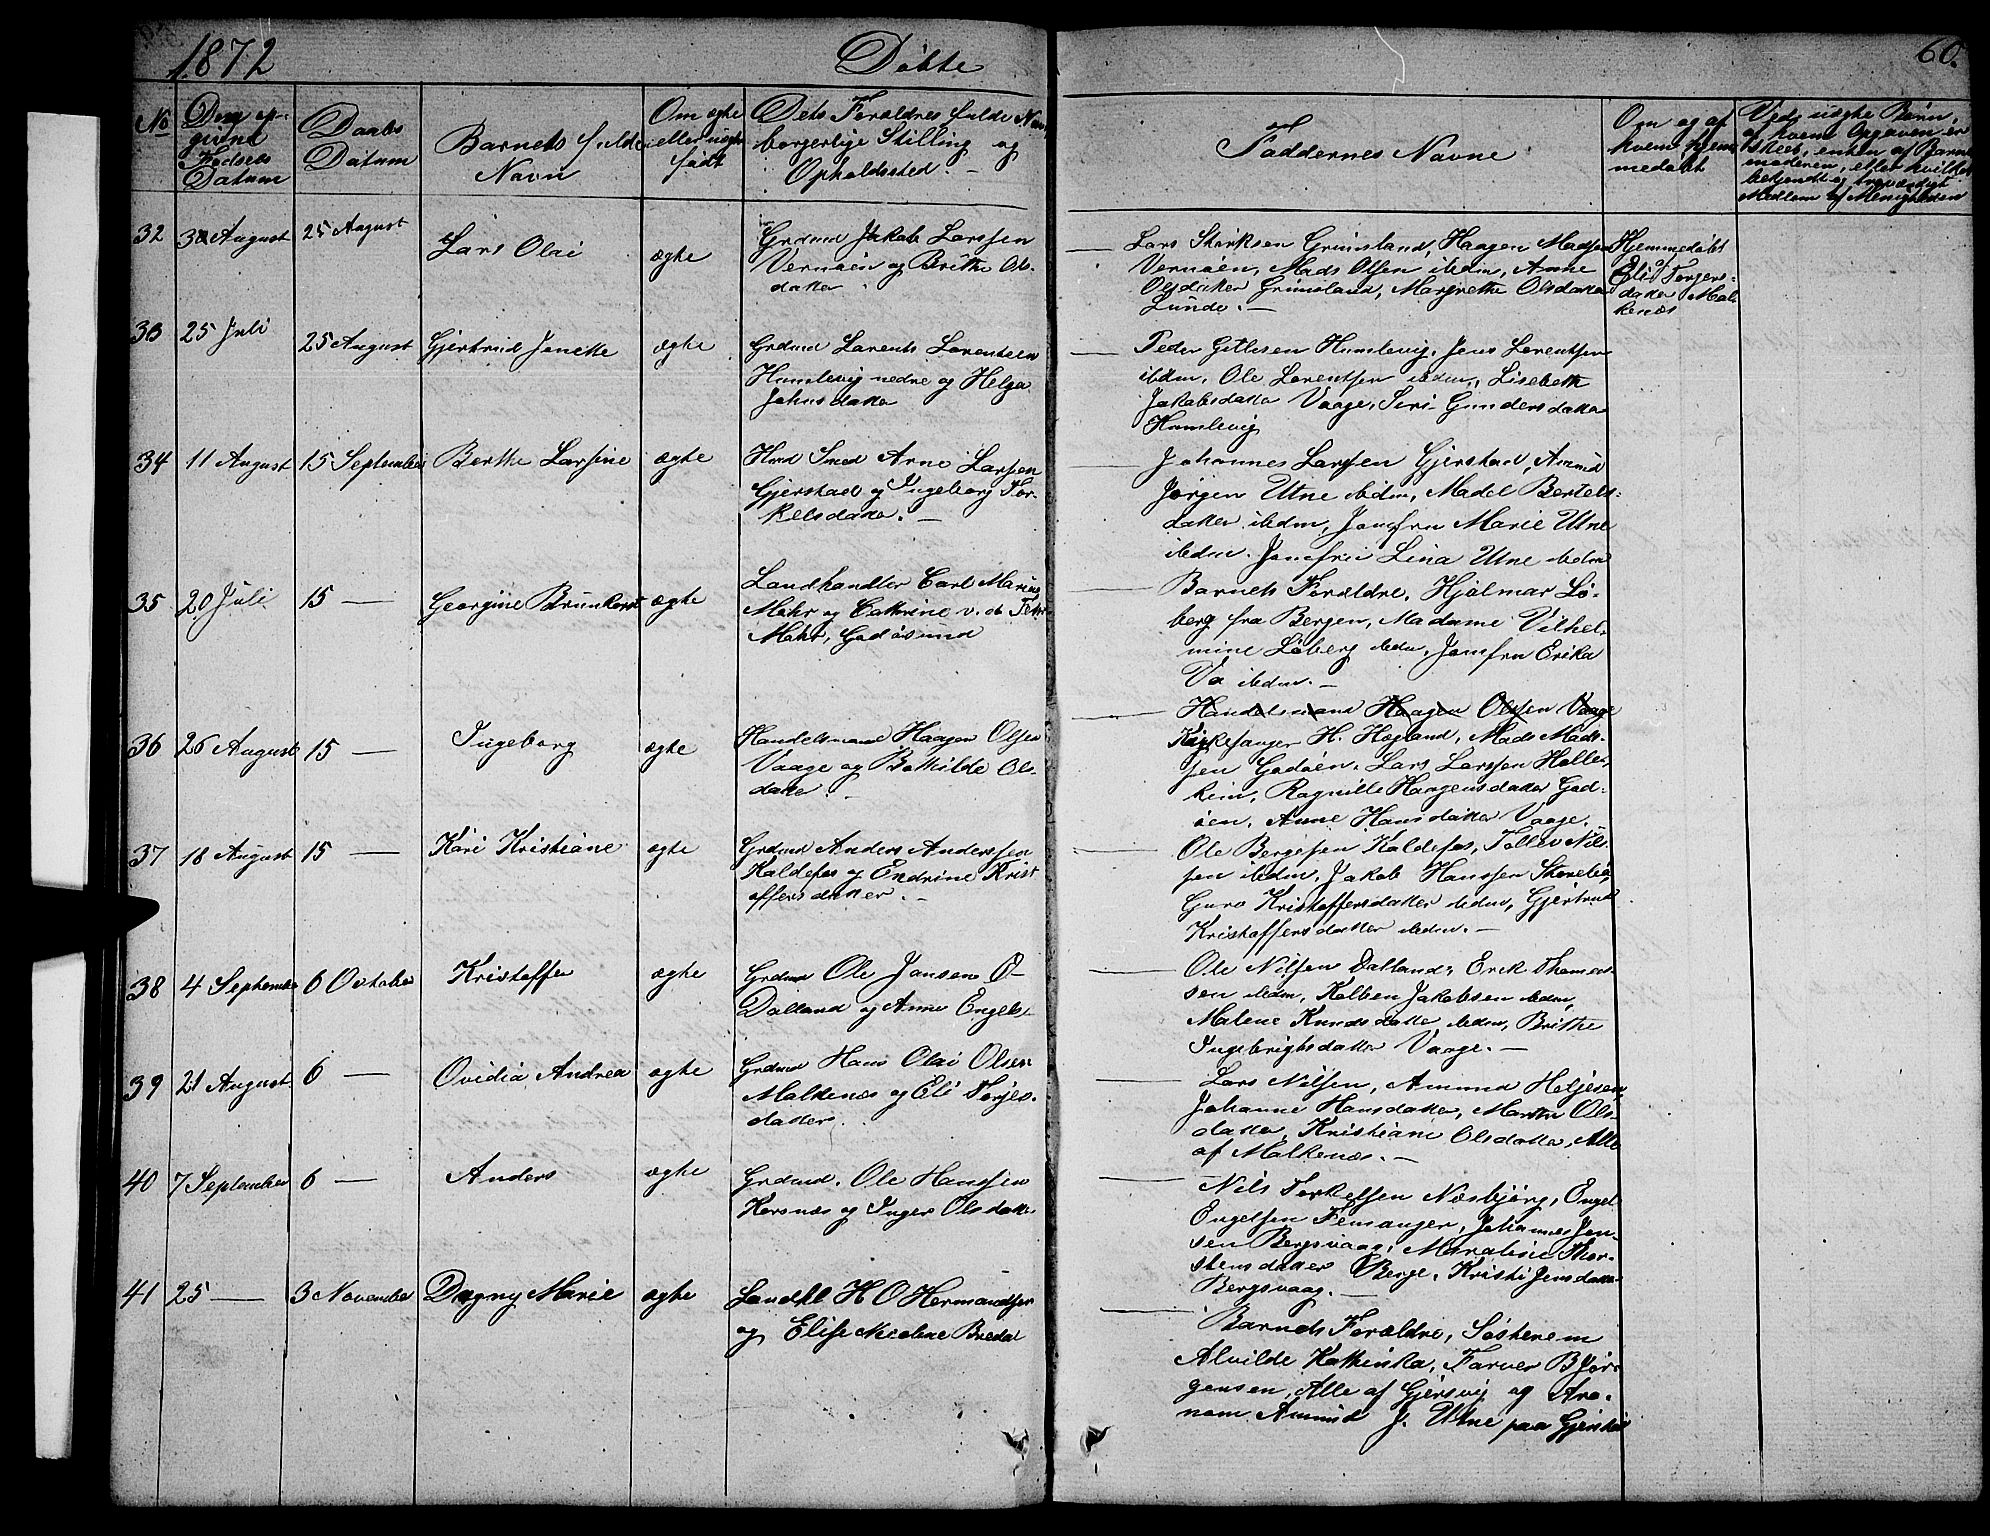 1872
Døbte
60.
No
Den opgivne Fødsels Datum
Daabs Datum
Barnets fulde Navn
Om ægte eller uægte født
Dets Forældres fulde Navn borgerlige Stilling og Opholdssted.
Faddernes Navne
Om og af hvem hjemmedøbt
Ved uægte Børn,
32
August
25 August
Lars Olai
ægte
Grdmd Jakob Larssen
Vernøen og Brithe Ols-
datter
Lars Størksen Grimsland, Haagen Madsen
Vernøen, Mads Olsen ibdm, Anne
Olsdatter Grimsland, Margrethe Olsdatter
Lunde. —
Hjemmedøbt
af
Eli Torgers-
datter Mal-
kenæs
33
25 Juli
25 August
Gjertrud Janekke
ægte
Grdmd Lorents Lorentsen
Humlevig nedre og Helga
Johnsdatter
Peder Gitlesen Humlevig, Jens Lorentsen
ibdm, Ole Lorentsen ibdm, Lisebeth
Jakobsdatter Vaage, Siri Gundersdatter
Humlevig
34
11 August
15 September
Berthe Larsine
ægte
Hmd Smed Arne Larsen
Gjerstad og Ingeborg Tor-
kelsdatter. —
Johannes Larssen Gjerstad, Amund
Jørgen Utne ibdm, Madel Bertels-
datter ibdm, Jomfru Marie Utne
ibdm. Jomfru Lina Utne ibdm
35
20 Juli
15 —
Georgine Brunkorst
ægte
Landhandler Carl Marius
Mohr og Cathrine v. d.
Mohr, Godøsund
Barnets Forældre, Hjalmar Lø-
berg fra Bergen, Madame Vilhel-
mine Løberg ibdm, Jomfru Erika
ibdm. —
36
26 August
15 —
Ingeborg
ægte
Handelsmand Haagen Olsen
Vaage og Bothilde Ols-
datter. —
Handelsmand Haagen Olsen Vaage
Kirkesanger H. Høgland, Mads Mads-
sen Godøen, Lars Larssen Halle-
kim, Ragnille Haagensdatter God-
øen, Anne Hansdatter Vaage.
37
18 August
15 —
Kari Kristiane
ægte
Grdmd Anders Anderssen
Kaldefos og Endrine Krist
offersdatter. —
Ole Bergesen Kaldefos, Tollev Nil-
sen ibdm, Jakob Hanssen Storebø,
Guro Kristoffersdatter ibdm, Gjertrud
Kristoffersdatter ibdm. —
38
4 September
6 October
Kristoffer
ægte
Grdmd Ole Jansen Ø-
Dalland og Anne Engels-
Ole Nilsen Dalland, Erik Thomas-
sen ibdm, Kolben Jakobsen ibdm,
Malene Knudsdatter ibdm, Brithe
Ingebrigtsdatter Vaage. —
39
21 August
6 —
Ovidia Andrea
ægte
Grdmd Hans Olai Olsen
Malkenæs og Eli Torjes-
datter.
Lars Nilsen, Amund Heljesen,
Johanne Hansdatter, Martha Ols-
datter, Kristiane Olsdatter, Alle
af Malkenæs. —
40
7 September
6 —
Anders
ægte
Grdmd. Ole Hanssen
Korsnæs og Inger Olsdatter
Nils Torkelssen Næsbjørg, Engel
Engelsen Femanger, Johannes Jen-
sen Bergsvaag, Maraline Thor-
stensdatter Berge, Kristi Jensdatter
Bergsvaag. —
41
25 —
3 November
Dagny Marie
ægte
Landhl H O Hermandsen
og Elise Nicoline Breder
Barnets Forældre, Søsteren
Alvilde Kathinka, Farver B Jør-
gensen, Alle af Gjersvig og Aro-
nom Amund J. Utne paa Gjerstad